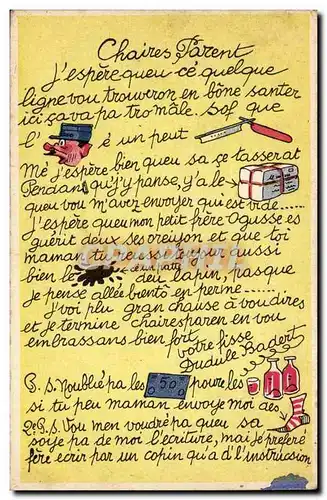 Chaires Parent
J'espère queu cé quelque
ligne vou trouveron en bône santer
ici ça va pa tro mâle. Sof que
l' é un peut
Mé j'espère bien queu sa çe tasserat
Pendant qu'j'y panse, y a le
queu vou m'avez envoyer qui est vide......
J'espère queu mon petit frère Ogusse es
guérit deux ses reiyon et que toi
maman tu reusst toujour aussi
bien le deu lapin, pasque
je pense allée bientô en perme......
J'voi plu gran chause à vou dires
et je termine chaires paren en vou
embrassans bien fort
votre fisse
Dudule Badort
P.S. Noublié pa les 50 poure les
si tu peu maman envoye moi des
2e P.S. Vou men voudré pa queu sa
soije pa de moi l'écriture, mai je préfère
fère ecrir par un copin qu'a d'l'instrucsion